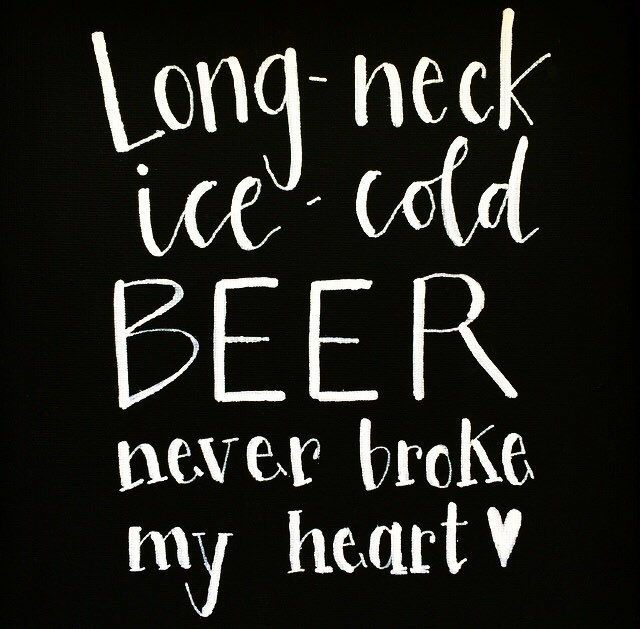 Long-neck
ice-cold
BEER
never broke
my heart